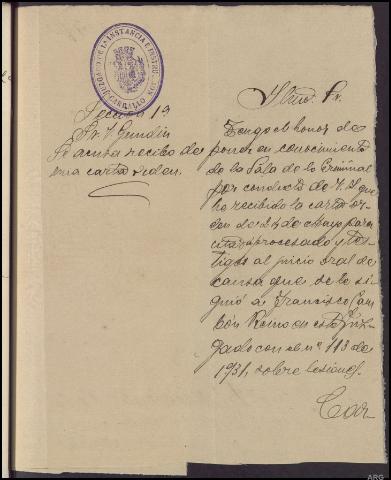 JUZGADO DE 1A INSTANCIA E INSTRUCCION
CARBALLO
Sección 1ª
Sr. V. Gundín
Se acusa recibo de
una carta orden.
Iltmo. Sr.
Tengo el honor de
poner en conocimiento
de la Sala de lo Criminal
por conducto de V. I. que
he recibido la carta or-
den de 24 de Mayo para
citar a procesado y tes-
tigos al juicio oral de
causa que de le si-
guió a Francisco Cam-
bón Reino en este Juz-
gado con el nº 113 de
1931, sobre lesiones.
Car-
ARG